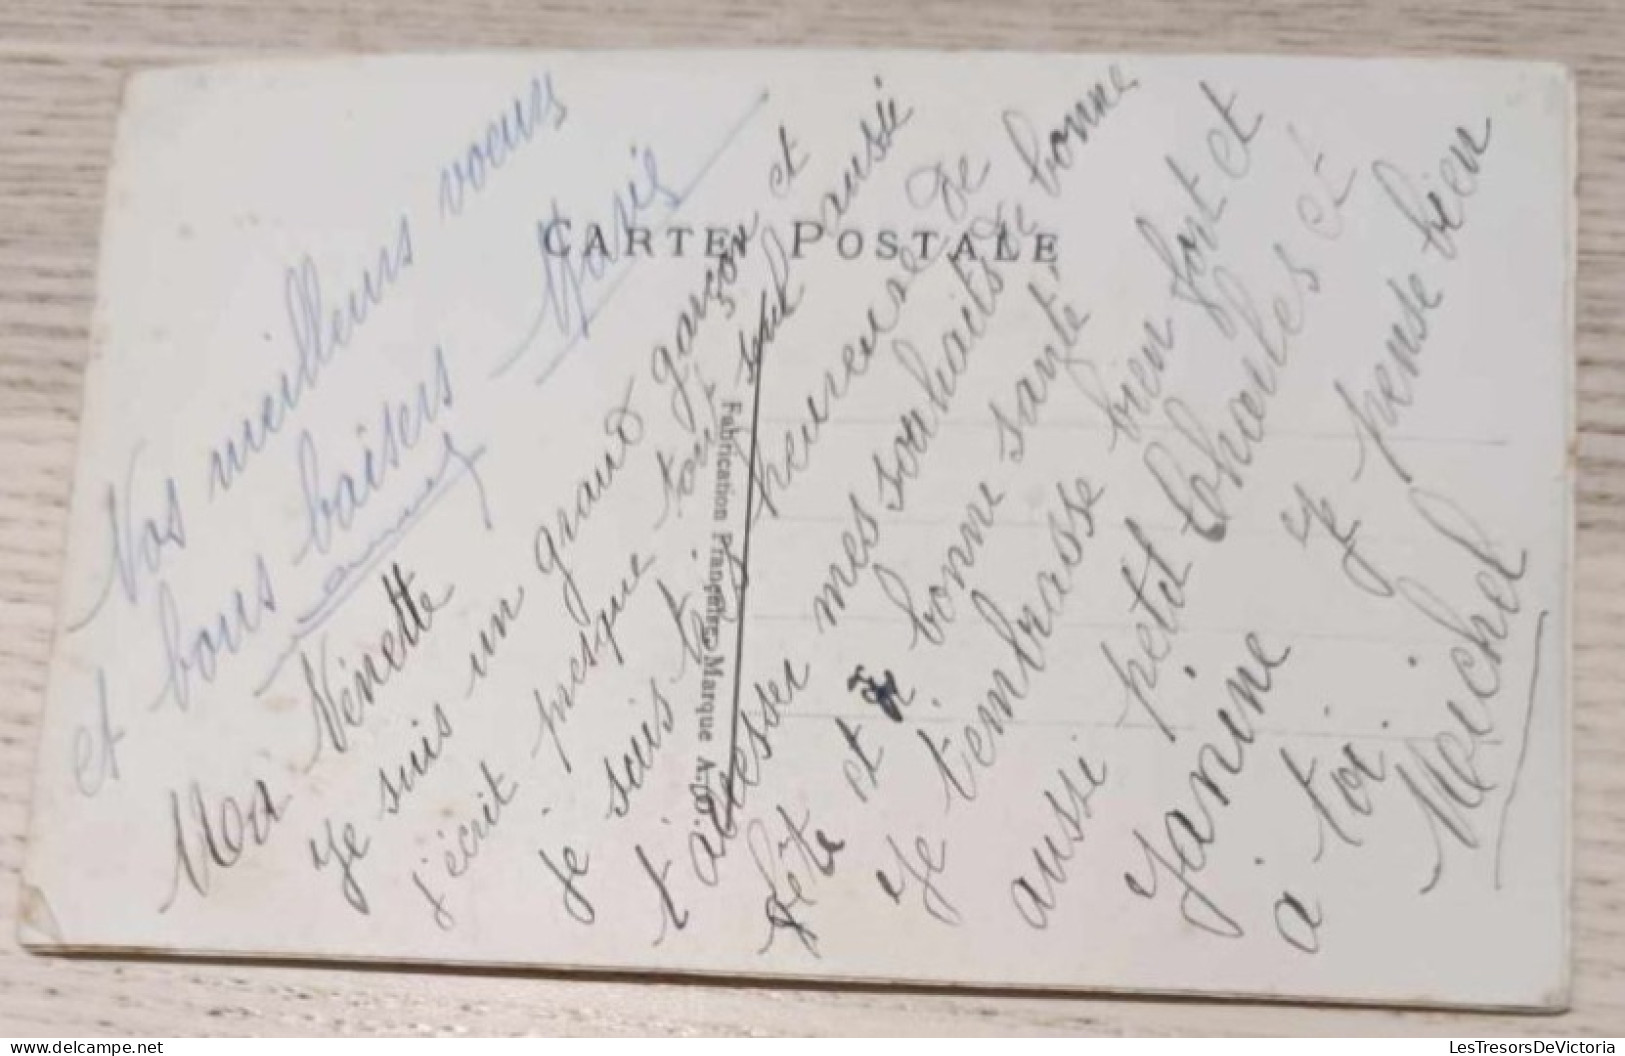 CARTE POSTALE
Nos meilleurs voeux
et bons baisers
Ma Nénette
Je suis un grand garçon et
j'écrit presque tout seul aussi
je suis très heureuse de
t'adresser mes souhaits de bonne
fête et de bonne santé
Je t'embrasse bien fort et
aussi petit Charles et
Janine Je pense bien
à toi.
Michel
Fabrication Française - Marque A.D.
LesTresorsDeVictoria
LesTresorsDeVictoria.com